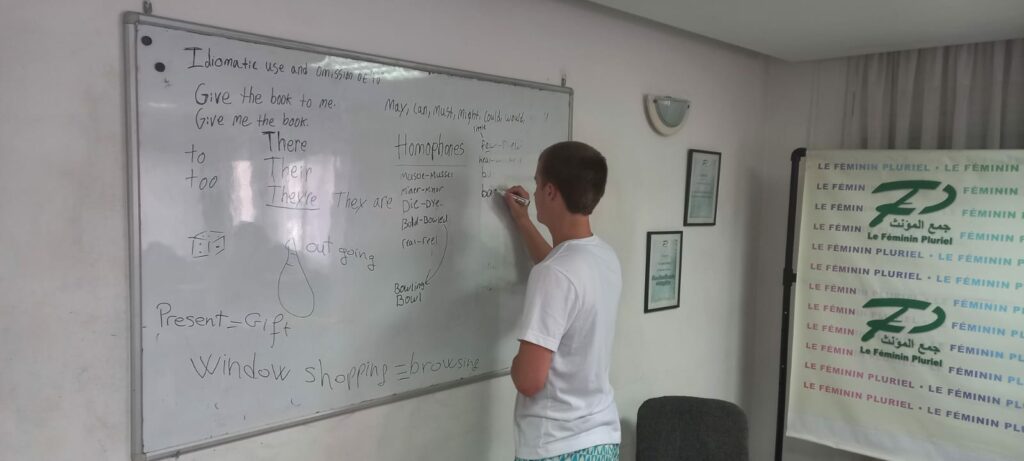 Idiomatic use and omission of
Give the book to me.
Give me the book.
to
too
There
Their
They're They are
out going
Present = Gift
Window shopping = browsing
May, can, must, might, could, would
Homophones
Muscle-Mussel
Miner-Minor
Die-Dye
Bold-Bowled
real-reel
Bowling
Bowl
LE FÉMININ PLURIEL • LE FÉMININ PLURIEL
LE FÉMININ
FÉMININ PLURIEL
جمع المؤنث
Le Féminin Pluriel
LE FÉMININ PLURIEL • LE FÉMININ PLURIEL
LE FÉMININ
FÉMININ PLURIEL
جمع المؤنث
Le Féminin Pluriel
LE FÉMININ PLURIEL • LE FÉMININ PLURIEL
LE FÉMININ PLURIEL • LE FÉMININ PLURIEL